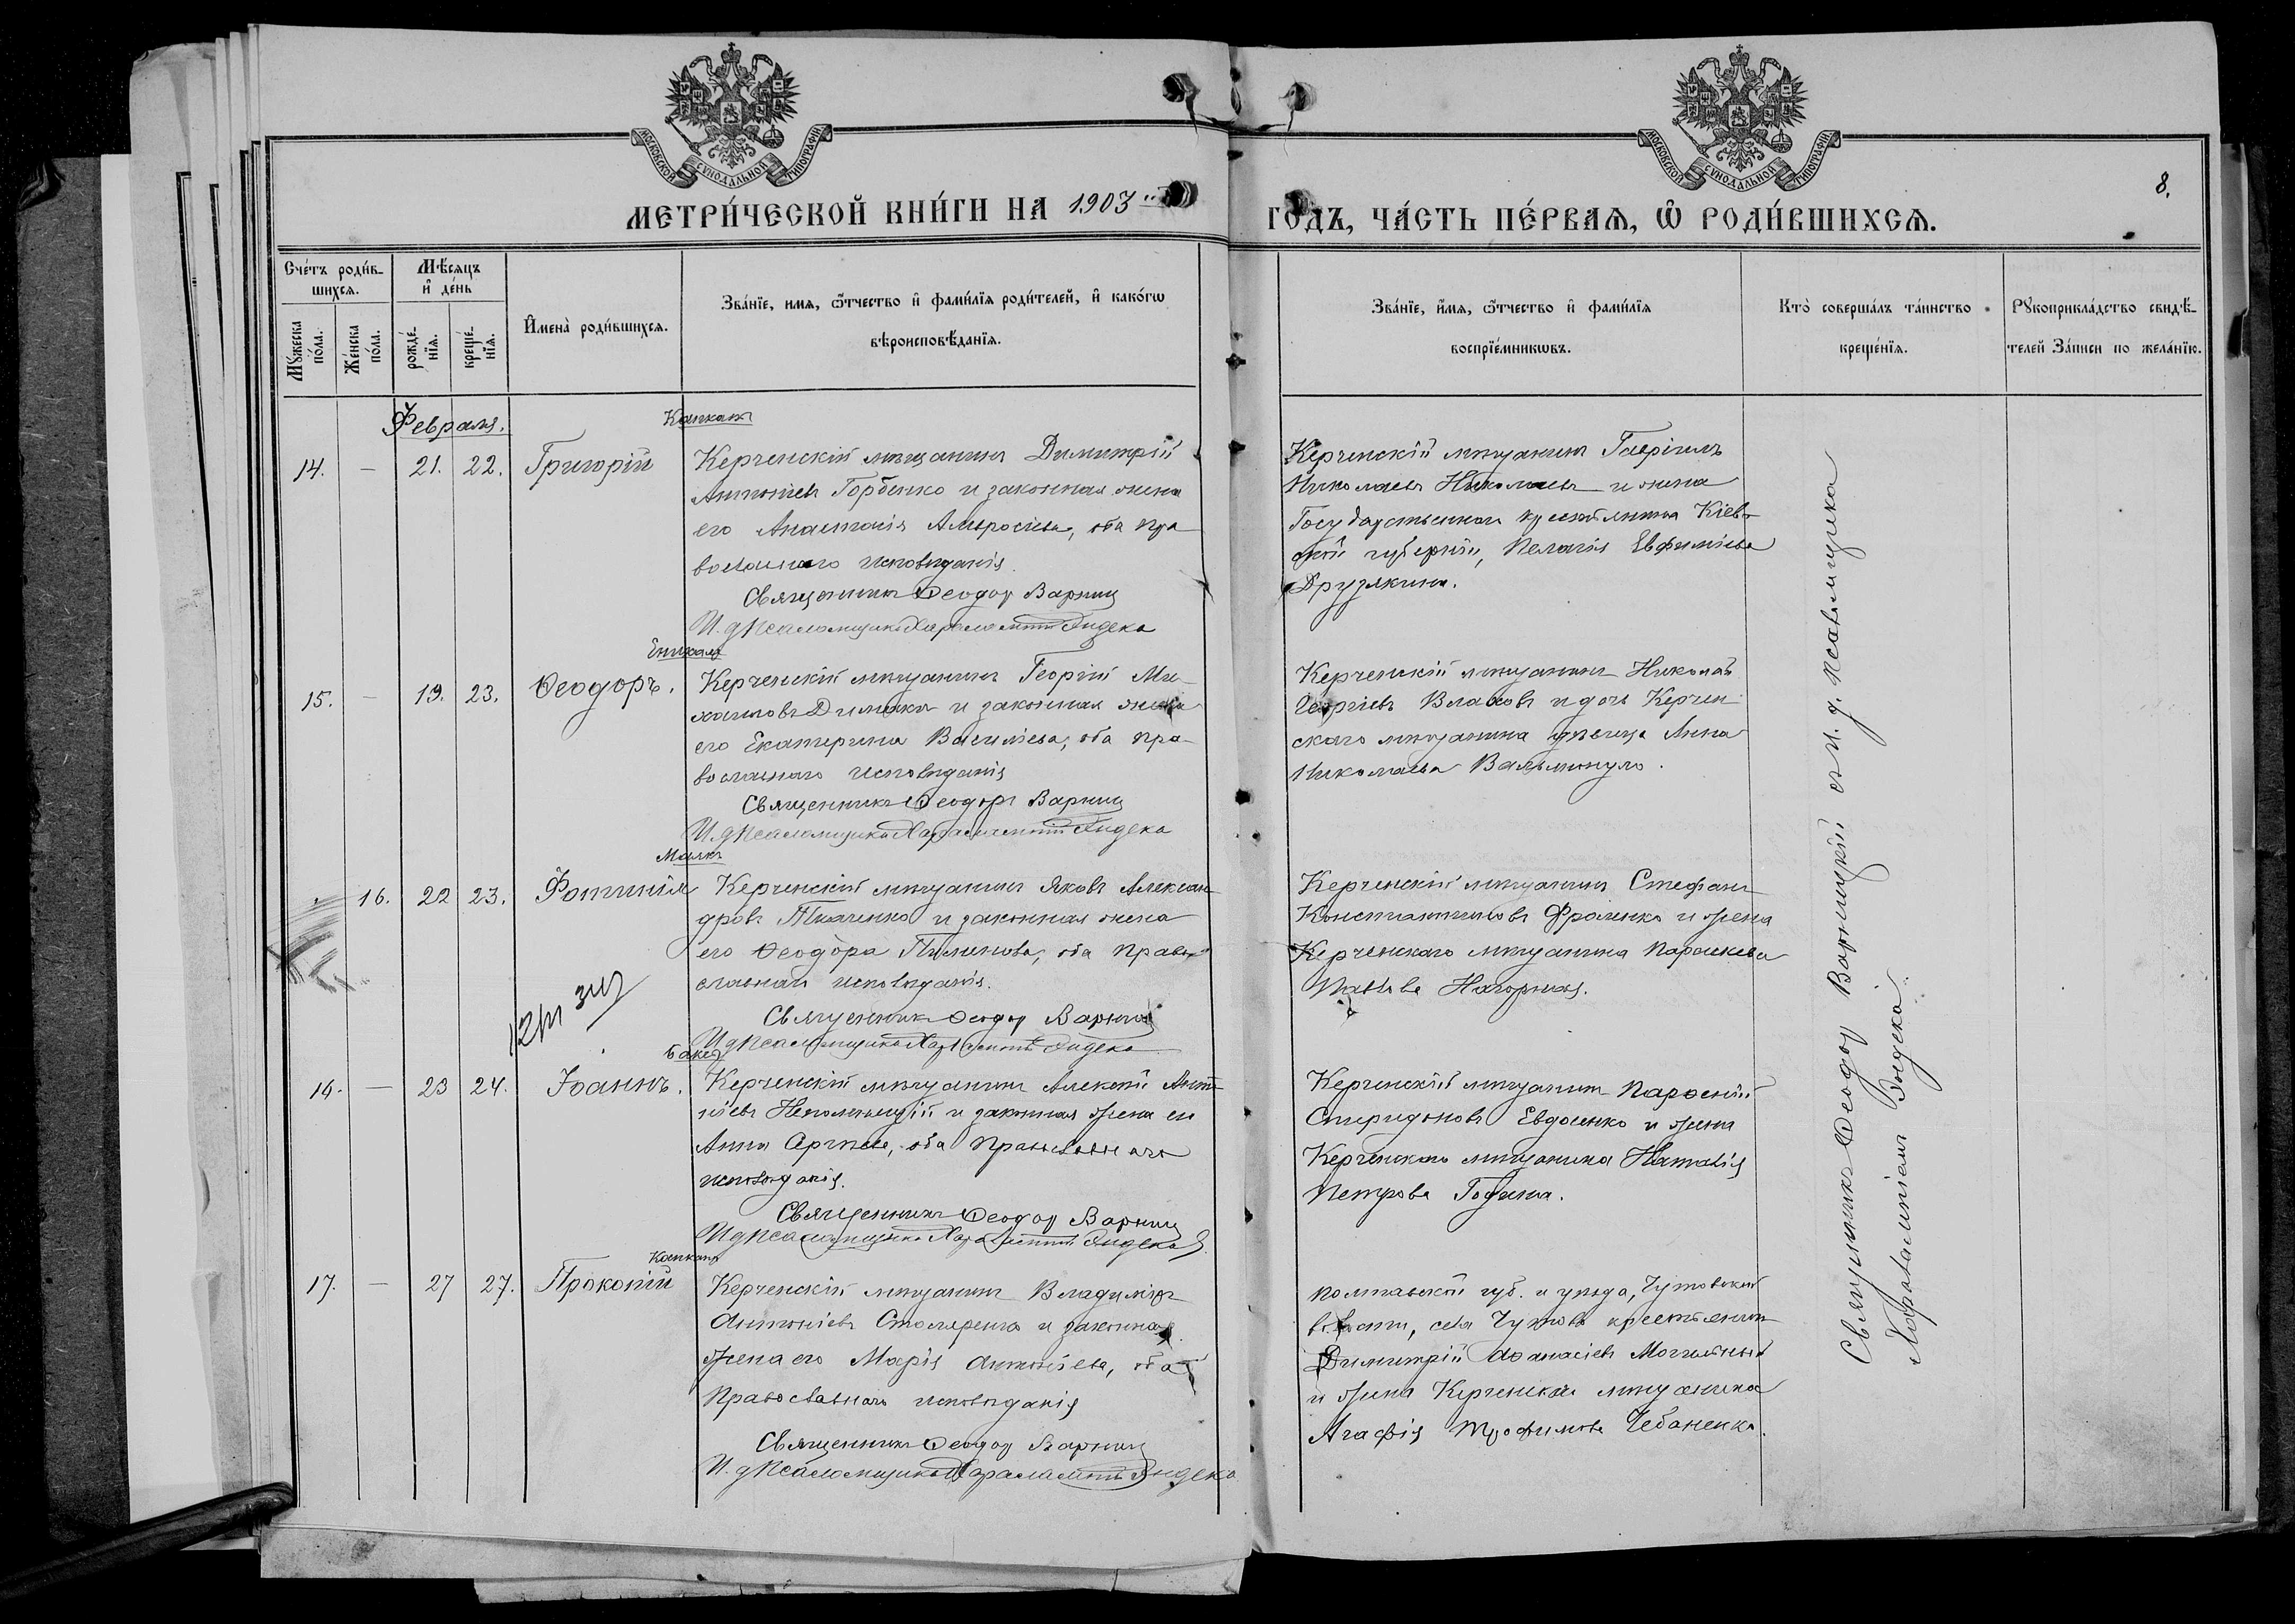 МОСКОВСКОЙ СѴНОДАЛЬНОЙ ТИПОГРАФІИ
МОСКОВСКОЙ СѴНОДАЛЬНОЙ ТИПОГРАФІИ
8.
МЕТРИ́ЧЕСКОЙ КНИ́ГИ НА 1903
ГОДЪ, ЧА́СТЬ ПЕ́РВАѦ, Ѡ҆ РОДИ́ВШИХСѦ.
Сче́тъ роди́в-
шихсѧ.
Мѣ́сяцъ
и҆ де́нь
Мꙋ́жеска
по́ла.
Же́нска
по́ла.
рожде́-
нїѧ.
креще́-
нїѧ.
И҆мена̀ роди́вшихсѧ.
Зва́нїе, имѧ, ѻ҆́тчество и҆ фами́лїѧ роди́телей, и҆ како́гѡ
вѣроисповѣ́данїѧ.
Зва́нїе, и҆́мѧ, ѻ҆́тчество и҆ фами́лїѧ
воспрїе́мникѡвъ.
Кто̀ соверша́лъ та́инство
креще́нїѧ.
Рꙋкоприкла́дство свидѣ́-
телей за́писи по жела́нїю.
Февраля.
Капканъ
14. — 21. 22. Григорій
Керченскій мѣщанинъ Димитрій
Антоніевъ Горбенко и законная жена
его Анастасія Амвросіева, оба пра
вославнаго исповѣданія.
Священникъ Ѳеодоръ
И. д. Псаломщика Харалампій
Керченскій мѣщанинъ Гавріилъ
Николаевъ Николаевъ и жена
Государственнаго крестьянина Кіев-
ской губерніи, Пелагія Евфиміева
Друзякина.
Еникале
15. — 19. 23. Ѳеодоръ.
Керченскій мѣщанинъ Георгій Ми-
хаиловъ и законная жена
его Екатерина Васильева, оба пра-
вославнаго исповѣданія
Священникъ Ѳеодоръ
И. д. Псаломщика Харалампій
Керченскій мѣщанинъ Николай
Георгіевъ Влаховъ и дочь Керчен
скаго мѣщанина дѣвица Анна
Николаева
Маякъ
16. 22 23. Фотинія
Керченскій мѣщанинъ Яковъ Алексан-
дровъ Ткаченко и законная жена
его Ѳеодора, оба Право-
славнаго исповѣданія.
Священникъ Ѳеодоръ
И. д. Псаломщика Харалампій
Керченскій мѣщанинъ Стефанъ
Константиновъ Фроленко и жена
Керченскаго мѣщанина Параскева
Нагорная.
16. — 23 24. Іоаннъ.
Керченскій мѣщанинъ Алексій Анто
ніевъ и законная жена его
Анна Сергѣева, оба Православнаго
исповѣданія.
Священникъ Ѳеодоръ
И. д. Псаломщика Харалампій
Керченскій мѣщанинъ Парѳеній
Спиридоновъ Евдоенко и жена
Керченскаго мѣщанина Наталія
Петрова Година.
Капканъ
17. — 27 27. Прокопій
Керченскій мѣщанинъ Владиміръ
Антоніевъ Столяренко и законная
жена его Марія Антоніева, оба
Православнаго исповѣданія
Священникъ Ѳеодоръ
И. д. Псаломщика Харалампій
Полтавской губ. и уѣзда, Чутовской
волости, села Чутова крестьянинъ
Димитрій Аѳанасіевъ Могильный
и жена Керченскаго мѣщанина
Агафія Трофимова Чебаненко.
Священникъ Ѳеодоръ Варницкій съ и. д. псаломщика
Харалампіемъ